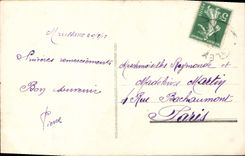 Sincères remerciements
Bon souvenir
Pierre
Mesdemoiselles Raymonde et
Madeleine Martin
4 Rue Bachaumont
Paris